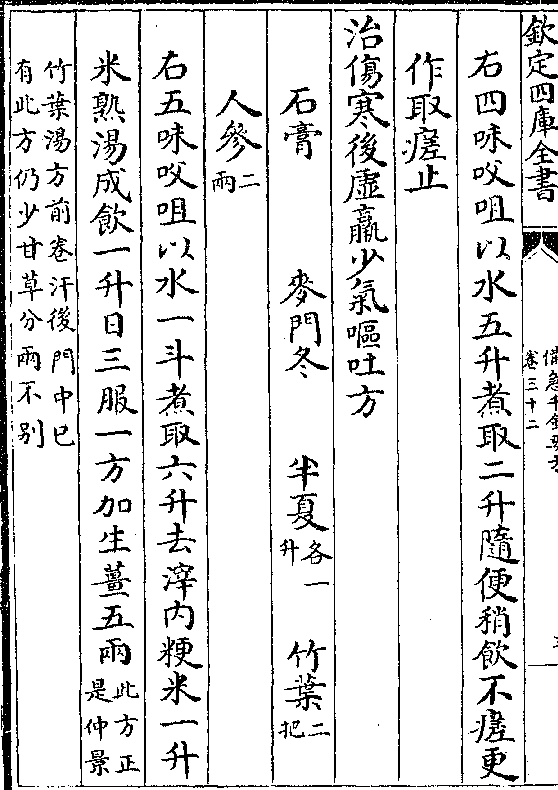 欽定四庫全書
卷三十二
右四味㕮咀以水五升煮取二升隨便稍飲不瘥更
作取瘥止
治傷寒後虛羸少氣嘔吐方
石膏 麥門冬 半夏各一升 竹葉二把
人參二兩
右五味㕮咀以水一斗煮取六升去滓内粳米一升
米熟湯成飲一升日三服一方加生薑五兩此方正是仲景
竹葉湯方前卷汗後門中已
有此方仍少甘草分兩不别